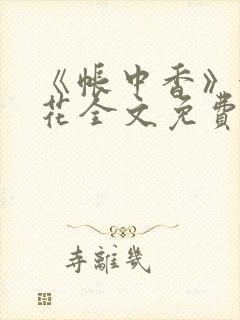 《帐中香》
花全文免費
寺離幾